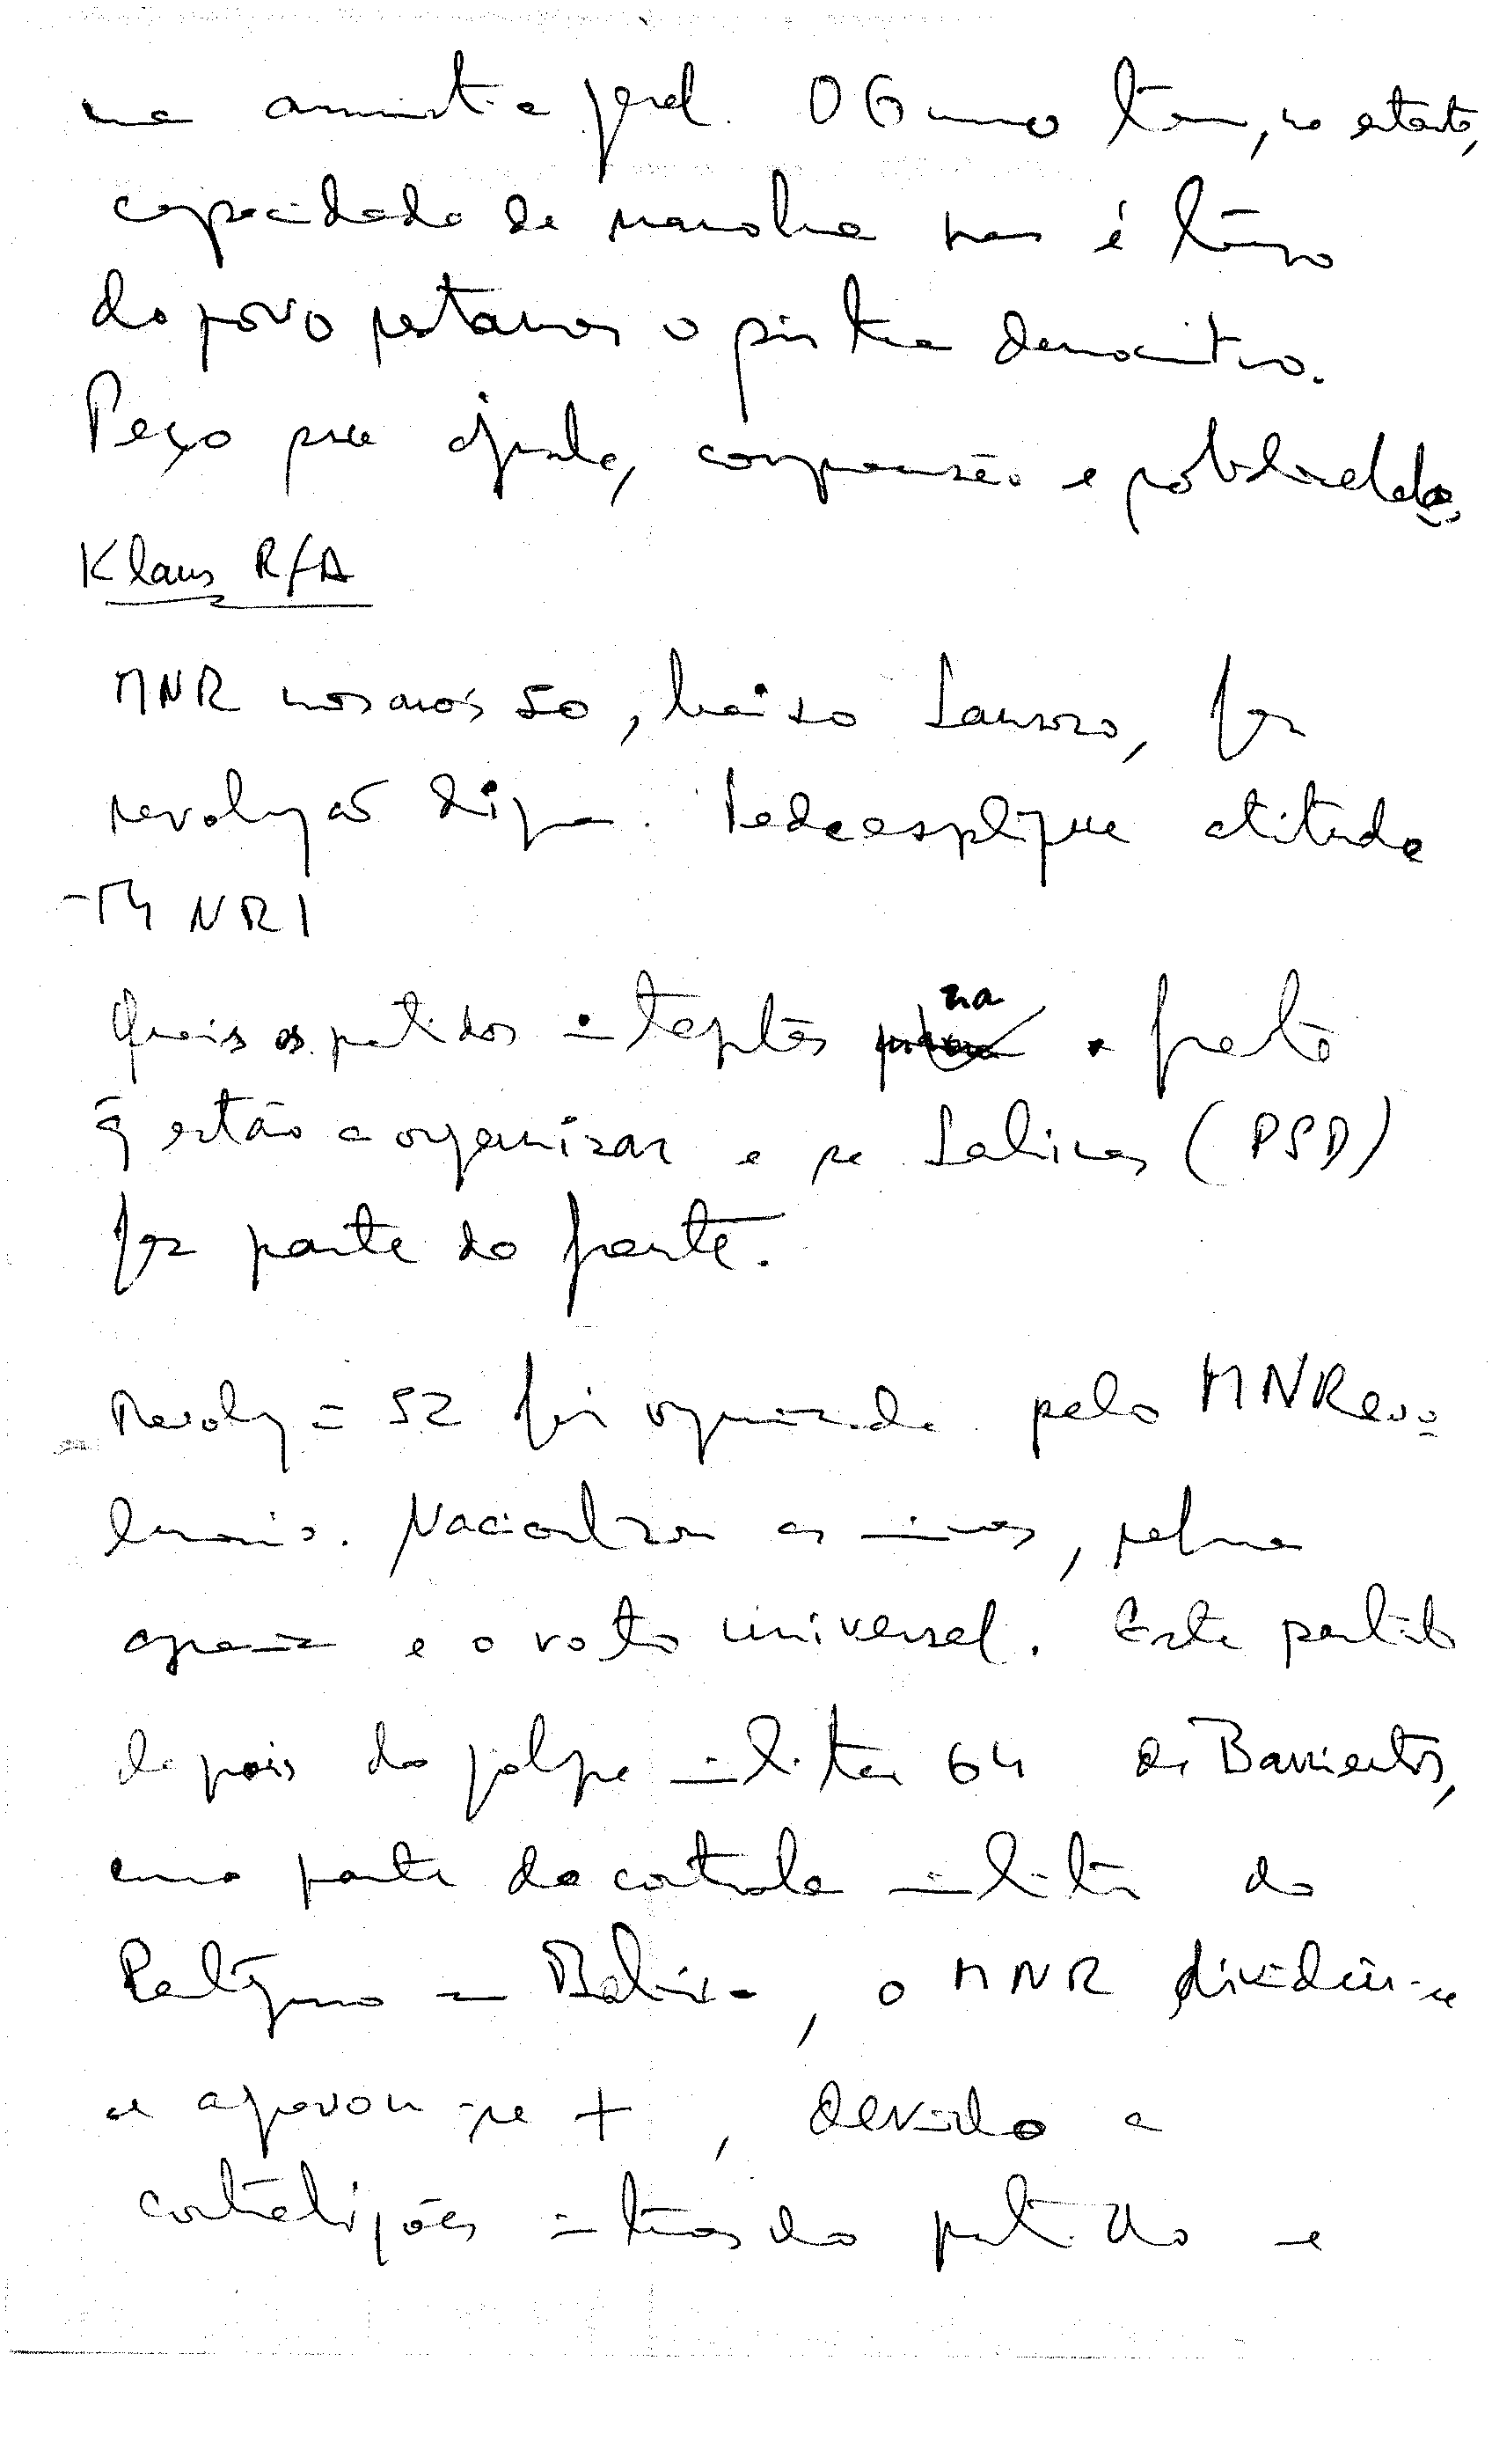 na amnistia geral. O G não tem, no entanto,
capacidade de manobra pois é tempo
do povo restaurar o sistema democrático.
Peço pois ajuda, compreensão e solidariedade
Klaus RFA
MNR nos anos 50, Siles Suazo, fez
revolução digna. Pede explique atitude
- MNRI
Quais os partidos integrantes na frente
q̃ estão a organizar e se Salinas (PSD)
faz parte da frente.
Revolução 52 foi organizada pelo MNRevo
lucionário. Nacionalizou as minas, reforma
agrária e o voto universal. Este partido
depois do golpe militar 64 de Barrientos,
como parte do controle militar do
Pentágono na Bolívia, o MNR dividiu-se
e agravou-se +, devido a
contradições internas do partido e